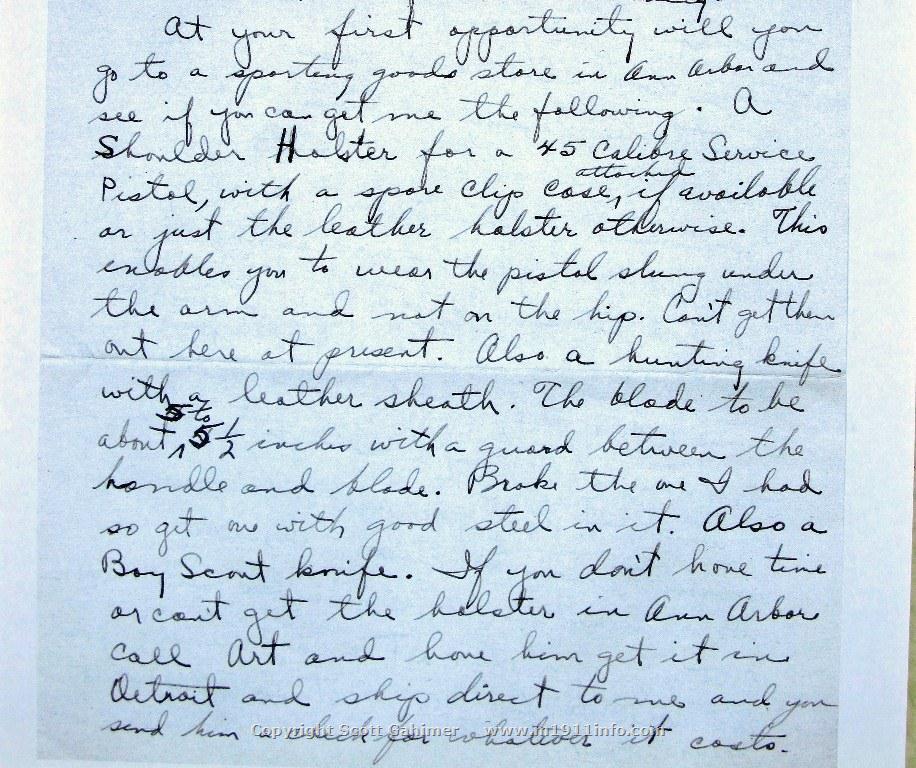 At your first opportunity will you
go to a sporting goods store in Ann Arbor and
see if you can get me the following. A
Shoulder Holster for a 45 Calibre Service
attached
Pistol, with a spare clip case, if available
or just the leather holster otherwise. This
enables you to wear the pistol slung under
the arm and not on the hip. Can't get them
out here at present. Also a hunting knife
with a leather sheath. The blade to be
5 to
about 5 1/2 inches with a guard between the
handle and blade. Broke the one I had
so get one with good steel in it. Also a
Boy Scout knife. If you don't have time
or can't get the holster in Ann Arbor
call Art and have him get it in
Detroit and ship direct to me and you
send him a check for whatever it costs.
Copyright Scott Gahimer www.m1911info.com